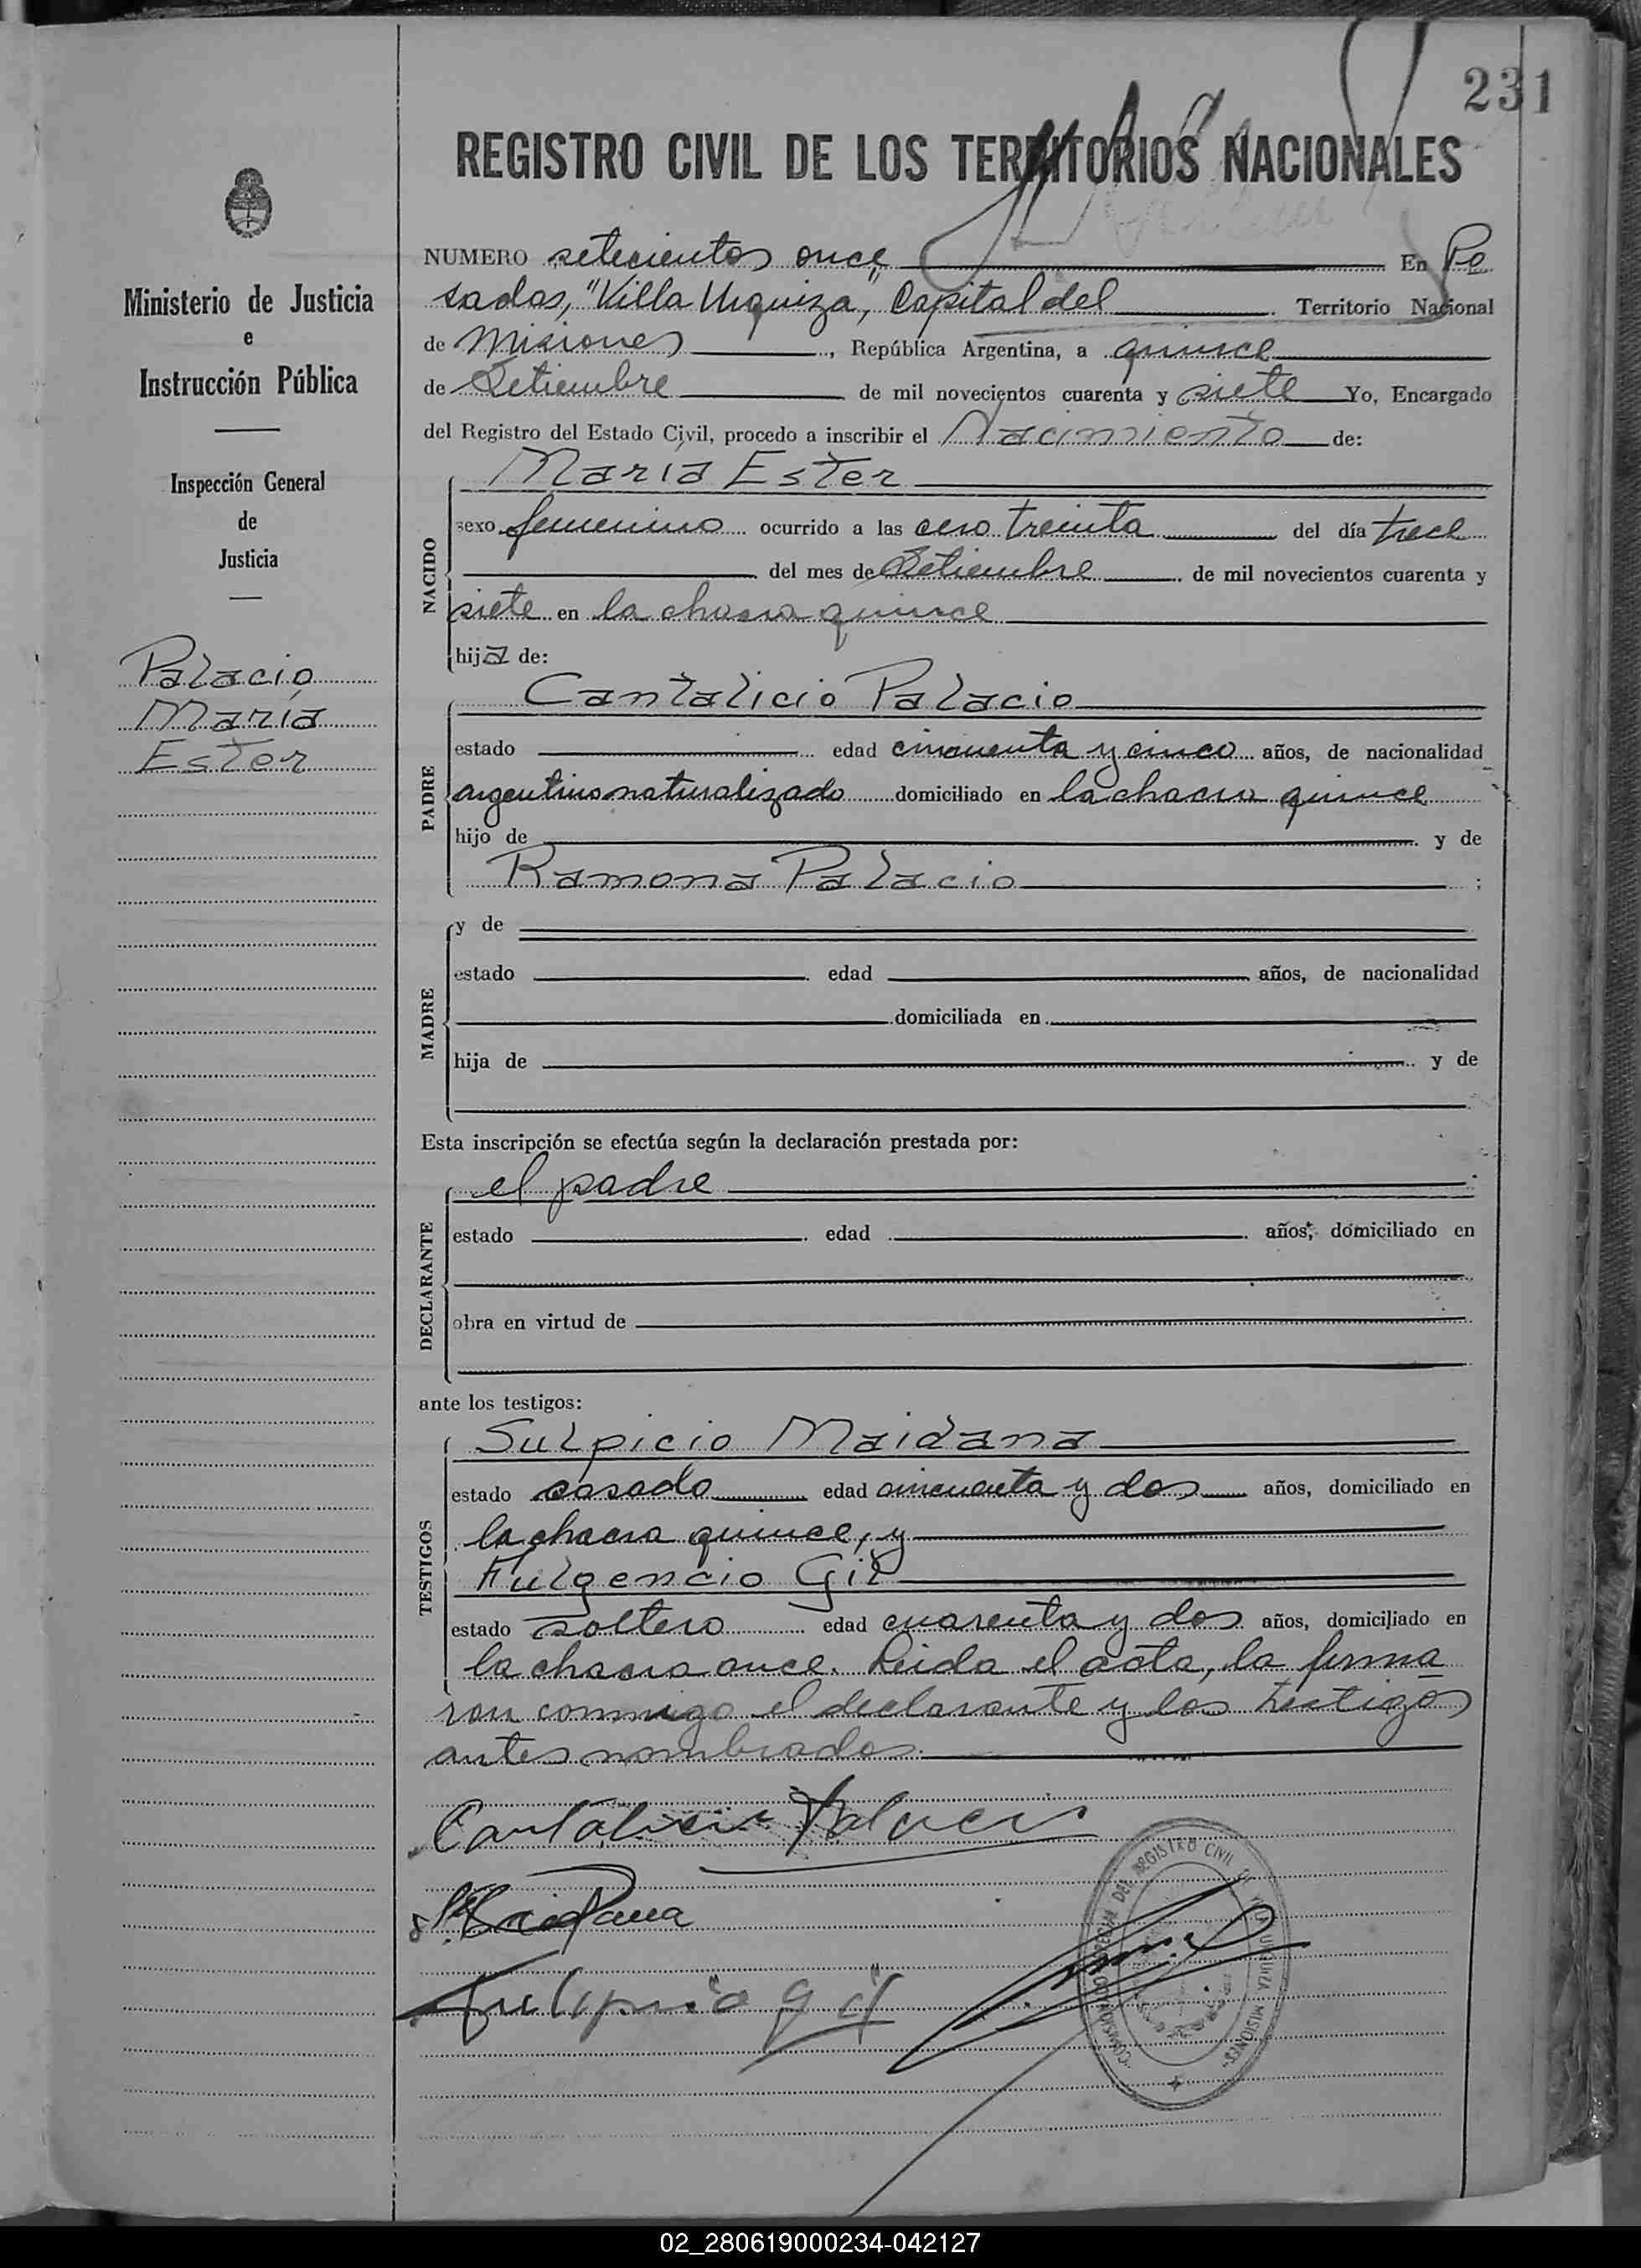 231
REGISTRO CIVIL DE LOS TERRITORIOS NACIONALES
Ministerio de Justicia
e
Instrucción Pública
Inspección General
de
Justicia
Palacio,
María
Ester
NUMERO setecientos once En Po
sadas, "Villa Urquiza", Capital del Territorio Nacional
de Misiones, República Argentina, a quince
de Setiembre de mil novecientos cuarenta y siete Yo, Encargado
del Registro del Estado Civil, procedo a inscribir el Nacimiento de:
NACIDO
María Ester
sexo femenino ocurrido a las cero treinta del día trece
del mes de Setiembre de mil novecientos cuarenta y
siete en la chacra quince
hija de:
PADRE
Cantalicio Palacio
estado edad cincuenta y cinco años, de nacionalidad
argentino naturalizado domiciliado en la chacra quince
hijo de y de
Ramona Palacio ;
MADRE
y de
estado edad años, de nacionalidad
domiciliada en
hija de y de
Esta inscripción se efectúa según la declaración prestada por:
DECLARANTE
el padre
estado edad años, domiciliado en
obra en virtud de
ante los testigos:
TESTIGOS
Sulpicio Maidana
estado casado edad cincuenta y dos años, domiciliado en
la chacra quince, y
Fulgencio Gil
estado soltero edad cuarenta y dos años, domiciliado en
la chacra once. Leida el acta, la firma
ron conmigo el declarante y los testigos
antes nombrados.
Cantalicio Palacio
S. Maidana
Fulgencio Gil
REGISTRO CIVIL DE VILLA URQUIZA MISIONES
02_280619000234-042127